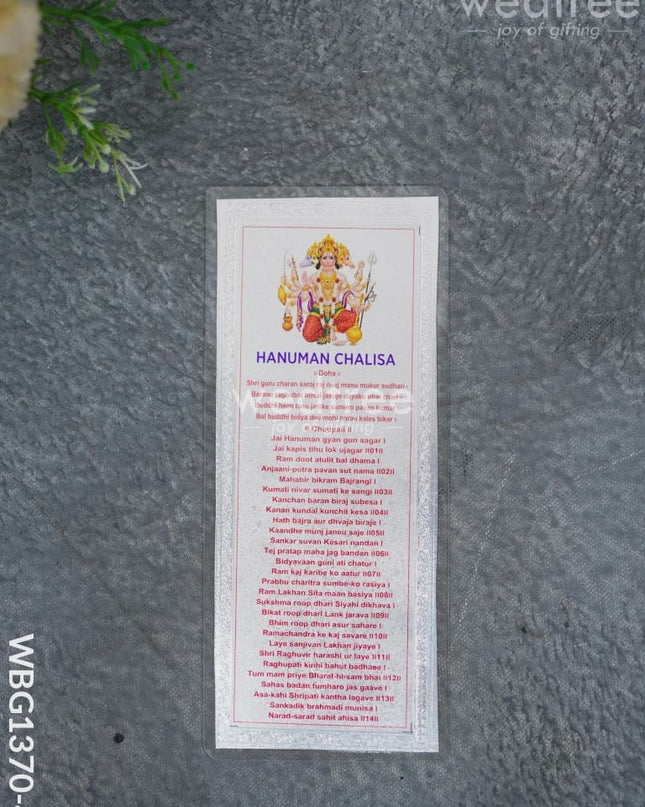 wedtree
joy of gifting
HANUMAN CHALISA
॥ Doha ॥
Shri guru charan saroj raj neej manu mukur sudhari ।
Barano raghubar bimal jasu
jo dayaku phal char
Buddhi heen tanu jan ke sumero pavan kumar
Bal buddhi bidya deu mohi harau kales bikar ॥
॥ Chaupaii ॥
Jai Hanuman gyan gun sagar ।
Jai kapis tihu lok ujagar ॥01॥
Ram doot atulit bal dhama ।
Anjaani-putra pavan sut nama ॥02॥
Mahabir bikram Bajrangi ।
Kumati nivar sumati ke sangi ॥03॥
Kanchan baran biraj subesa ।
Kanan kundal kunchit kesa ॥04॥
Hath bajra aur dhvaja biraje ।
Kaandhe munj janeu saje ॥05॥
Sankar suvan Kesari nandan ।
Tej pratap maha jag bandan ॥06॥
Bidyavaan guni ati chatur ।
Ram kaj karibe ko aatur ॥07॥
Prabhu charitra sumbe-ko rasiya ।
Ram Lakhan Sita maan basiya ॥08॥
Sukshma roop dhari Siyahi dikhava ।
Bikat roop dhari Lank jarava ॥09॥
Bhim roop dhari asur sahare ।
Ramachandra ke kaj savare ॥10॥
Laye sanjivan Lakhan jiyaye ।
Shri Raghuvir harashi ur laye ॥11॥
Raghupati kinhi bahut badhaee ।
Tum mam priye Bharat-hi-sam bhai ॥12॥
Sahas badan tumharo jas gaave ।
Asa-kahi Shripati kantha lagave ॥13॥
Sankadik brahmadi munisa ।
Narad-sarad sahit ahisa ॥14॥
wedtree
joy of gifting
WBG1370-